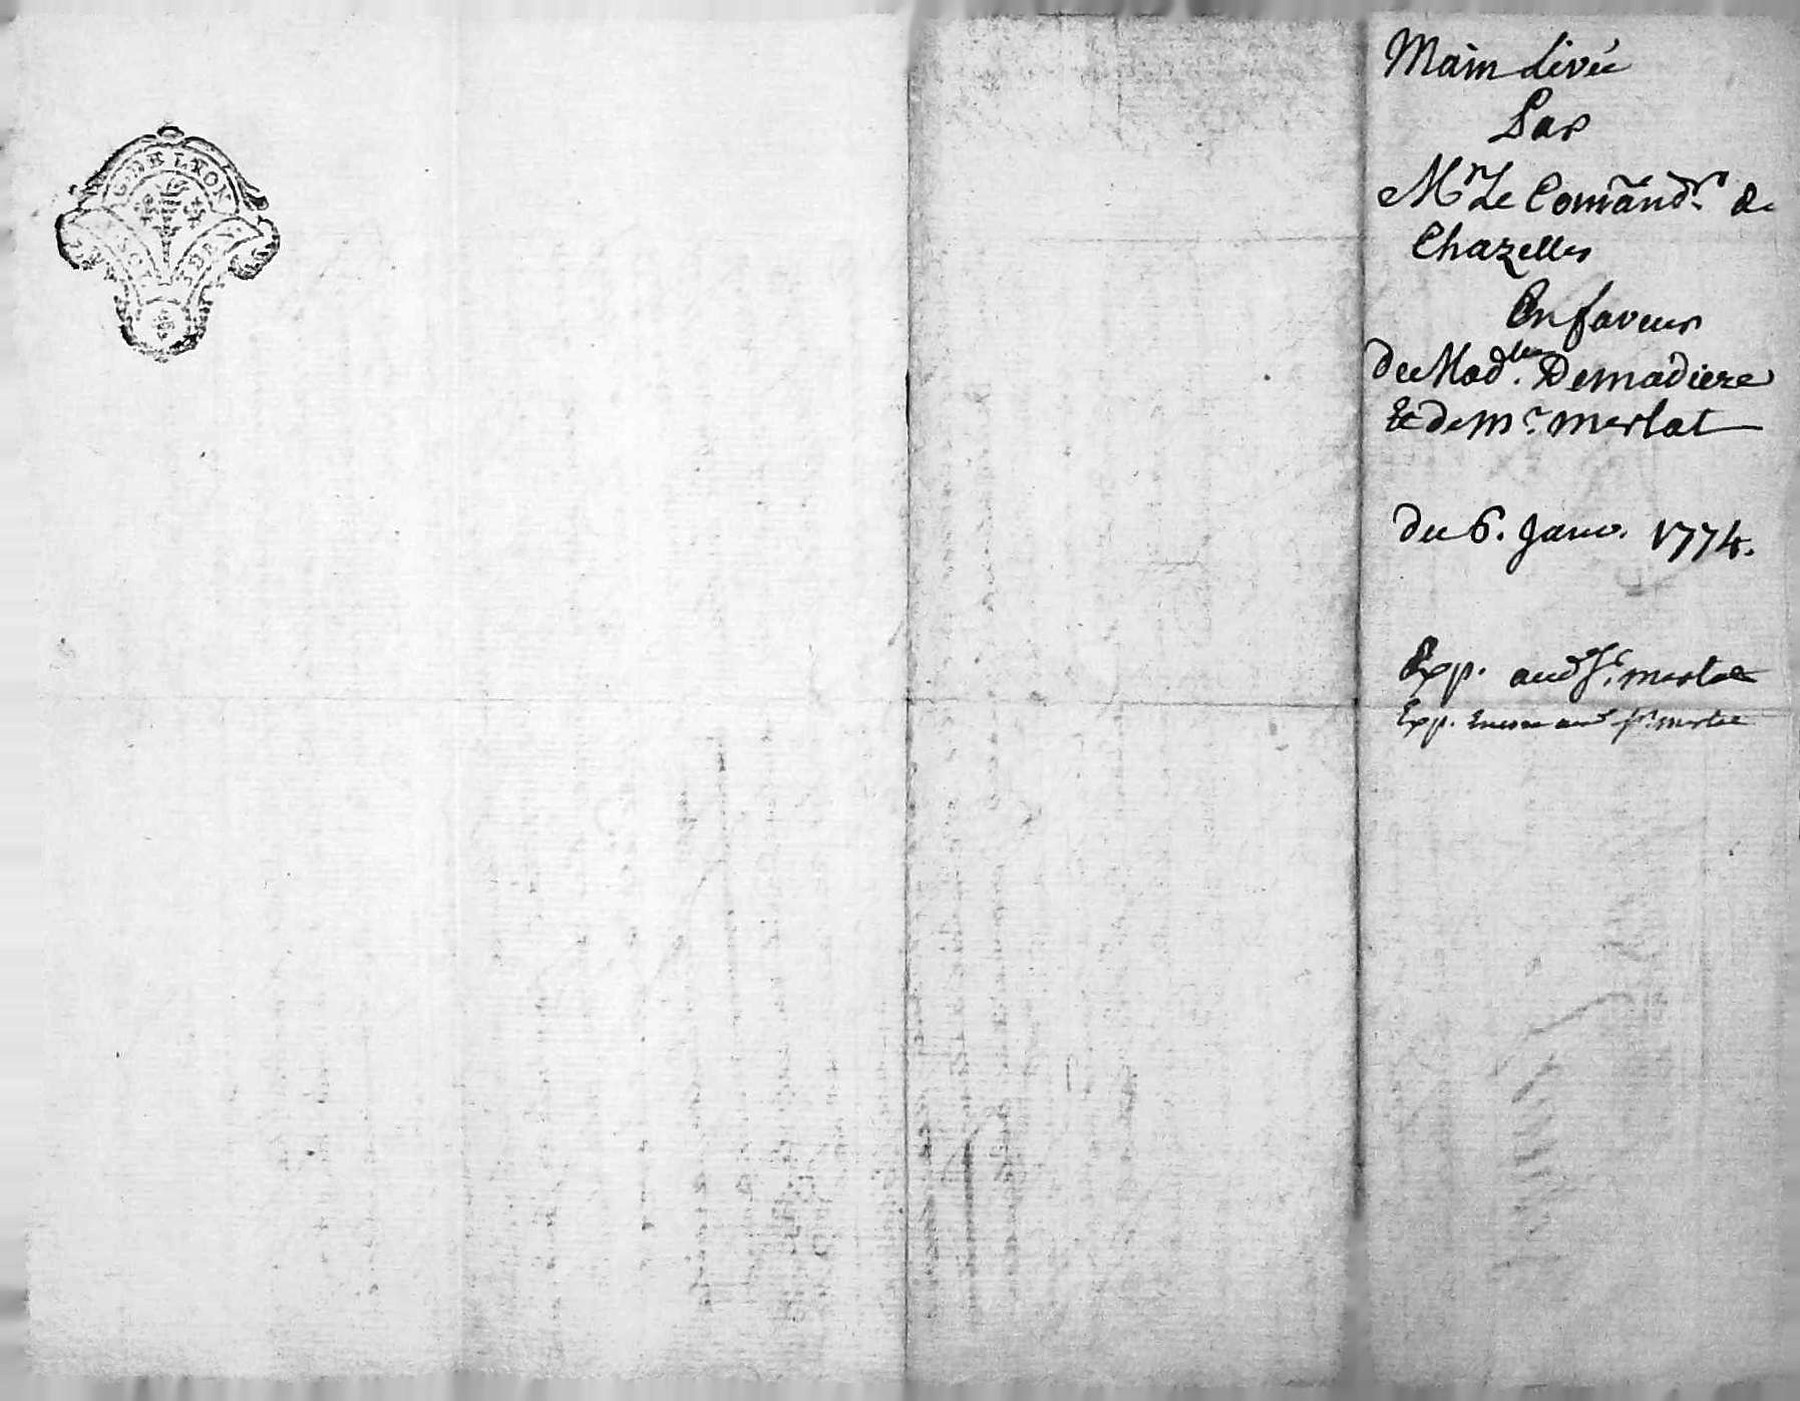 G. DE LYON
Main Livée
Par
Mr. Le Comand.r de
Chazelles
En faveur
de Mad.lle Demadiere
& de Mr. Merlat
du 6. Janv. 1774.
Exp. aud. Sr. Merlat
Exp. aud. Sr. Merlat